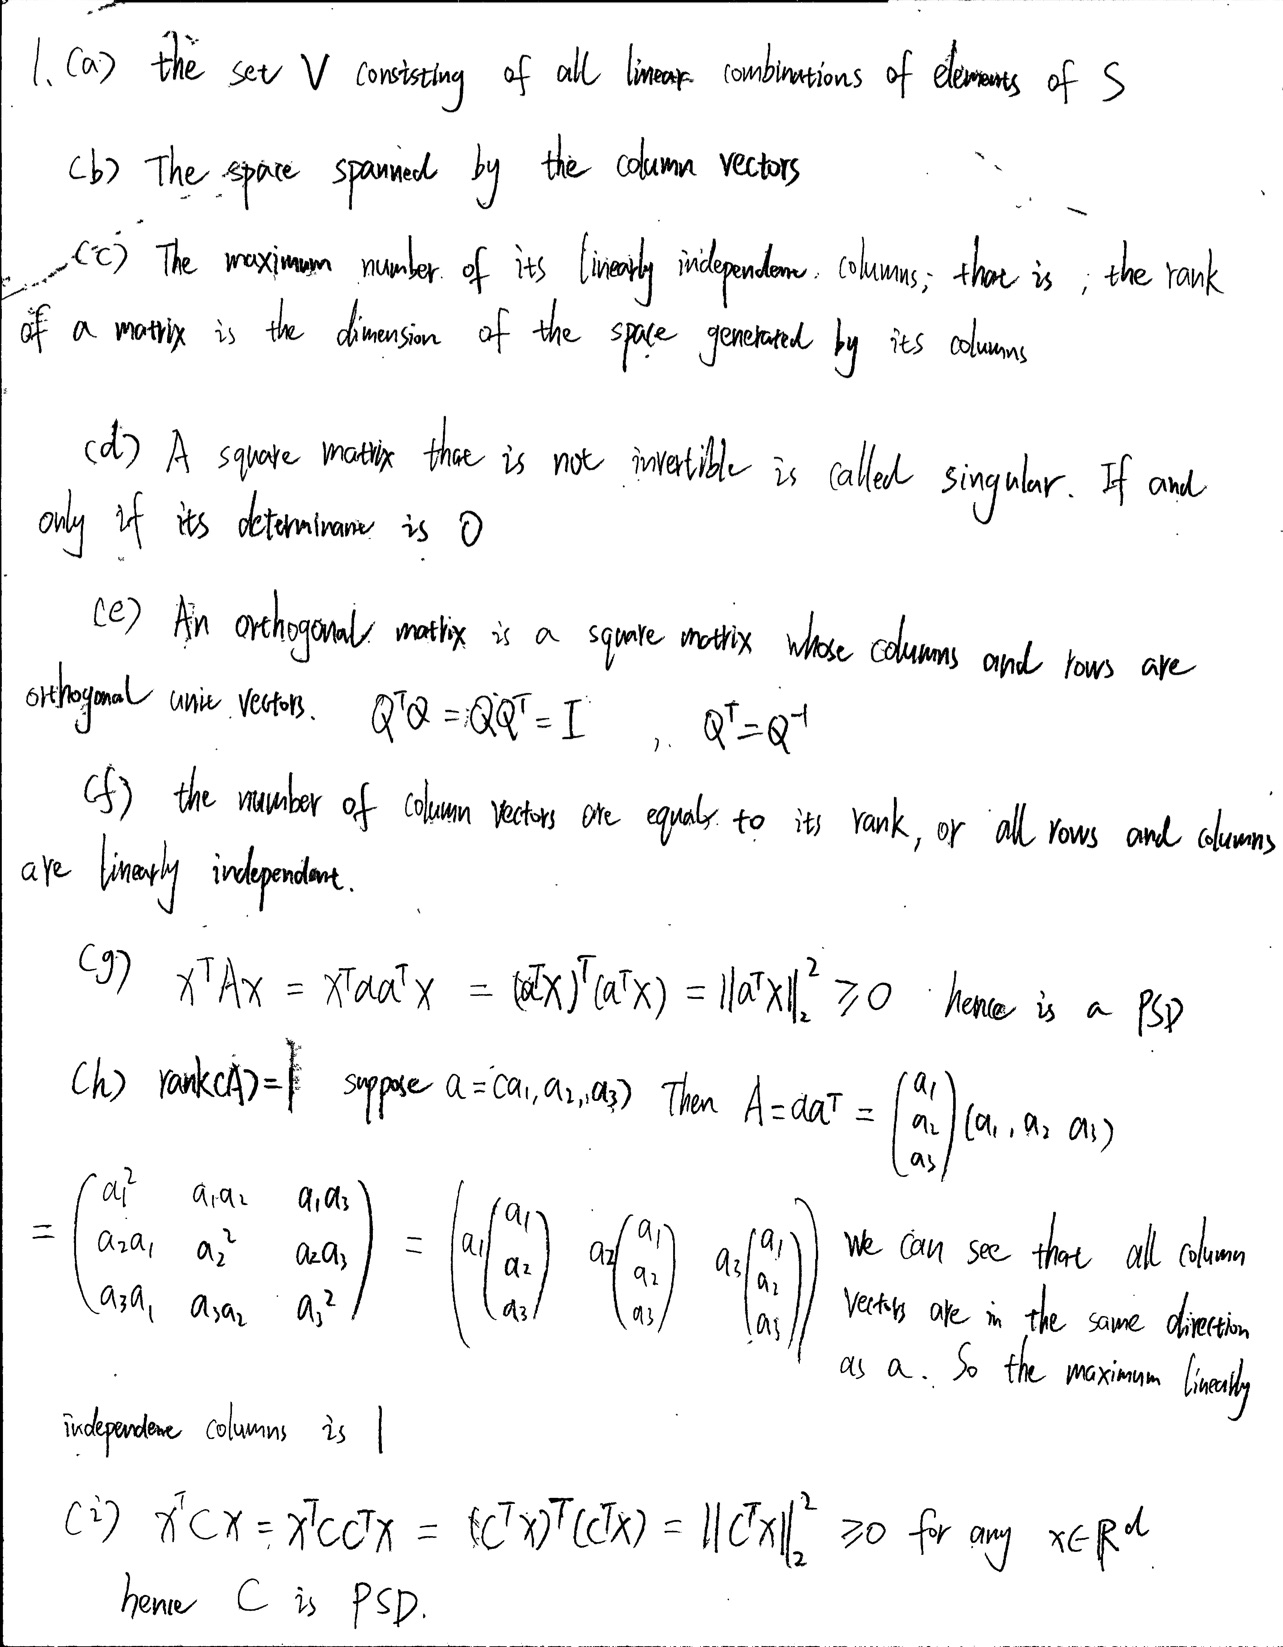 1. (a) the set V consisting of all linear combinations of elements of S
(b) The space spanned by the column vectors
(c) The maximum number of its linearly independent columns; that is, the rank
of a matrix is the dimension of the space generated by its columns
(d) A square matrix that is not invertible is called singular. If and
only if its determinant is 0
(e) An orthogonal matrix is a square matrix whose columns and rows are
orthogonal unit vectors. QᵀQ = QQᵀ = I , Qᵀ = Q⁻¹
(f) the number of column vectors are equals to its rank, or all rows and columns
are linearly independent.
(g) xᵀAx = xᵀaaᵀx = (aᵀx)ᵀ(aᵀx) = ||aᵀx||₂² ⩾ 0 hence is a PSD
(h) rank(A) = 1 suppose a = (a₁, a₂, a₃) Then A = aaᵀ = (a₁ a₂ a₃) (a₁, a₂ a₃)
= (a₁² a₁a₂ a₁a₃ a₂a₁ a₂² a₂a₃ a₃a₁ a₃a₂ a₃²) = (a₁(a₁ a₂ a₃) a₂(a₁ a₂ a₃) a₃(a₁ a₂ a₃)) We can see that all column
vectors are in the same direction
as a. So the maximum linearly
independent columns is 1
(i) xᵀCx = xᵀCCᵀx = (Cᵀx)ᵀ(Cᵀx) = ||Cᵀx||₂² ⩾ 0 for any x ∈ ℝᵈ
hence C is PSD.